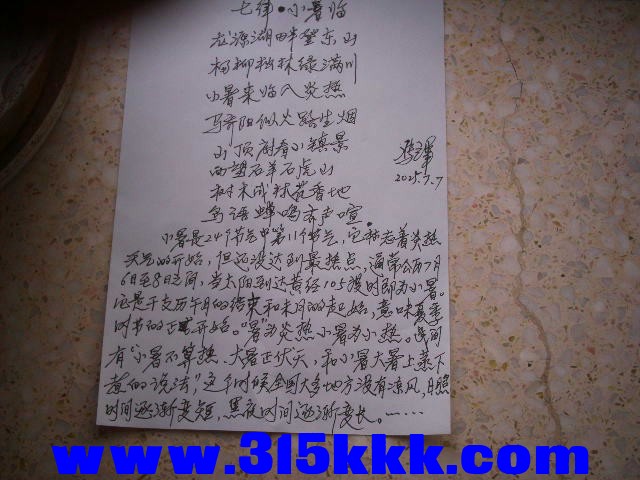 七律•小暑临
龙源湖畔望东山
杨柳松林绿满川
小暑来临入炎热
骄阳似火路生烟
山顶廟看小镇景
西望石羊石虎山
树木成林花香地
鸟语蝉鸣齐声喧.
2025.7.7
小暑是24个节气中第11个节气,它标志着炎热
天气的开始,但还没达到最热点,通常公历7月
6日至8日之间,当太阳到达黄经105度时即为小暑。
它是干支历午月的结束和未月的起始,意味夏季
时节的正式开始。"暑为炎热小暑为小热。民间
有"小暑不算热,大暑正伏天,和小暑大暑上蒸下
煮的说法"这个时候全国大多地方没有凉风,日照
时间逐渐变短,黑夜时间逐渐变长。……
www.315kkk.com